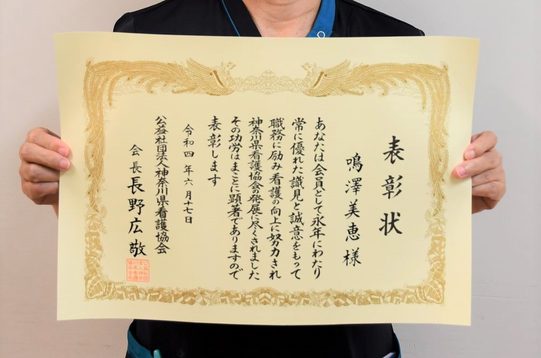 表彰状
鳴澤美恵様
あなたは会員として永年にわたり
常に優れた識見と誠意をもって
職務に励み看護の向上に努力され
神奈川県看護協会の発展に尽くされました
その功労はまことに顕著でありますので
表彰します
令和四年六月十七日
公益社団法人神奈川県看護協会
会長 長野広敬